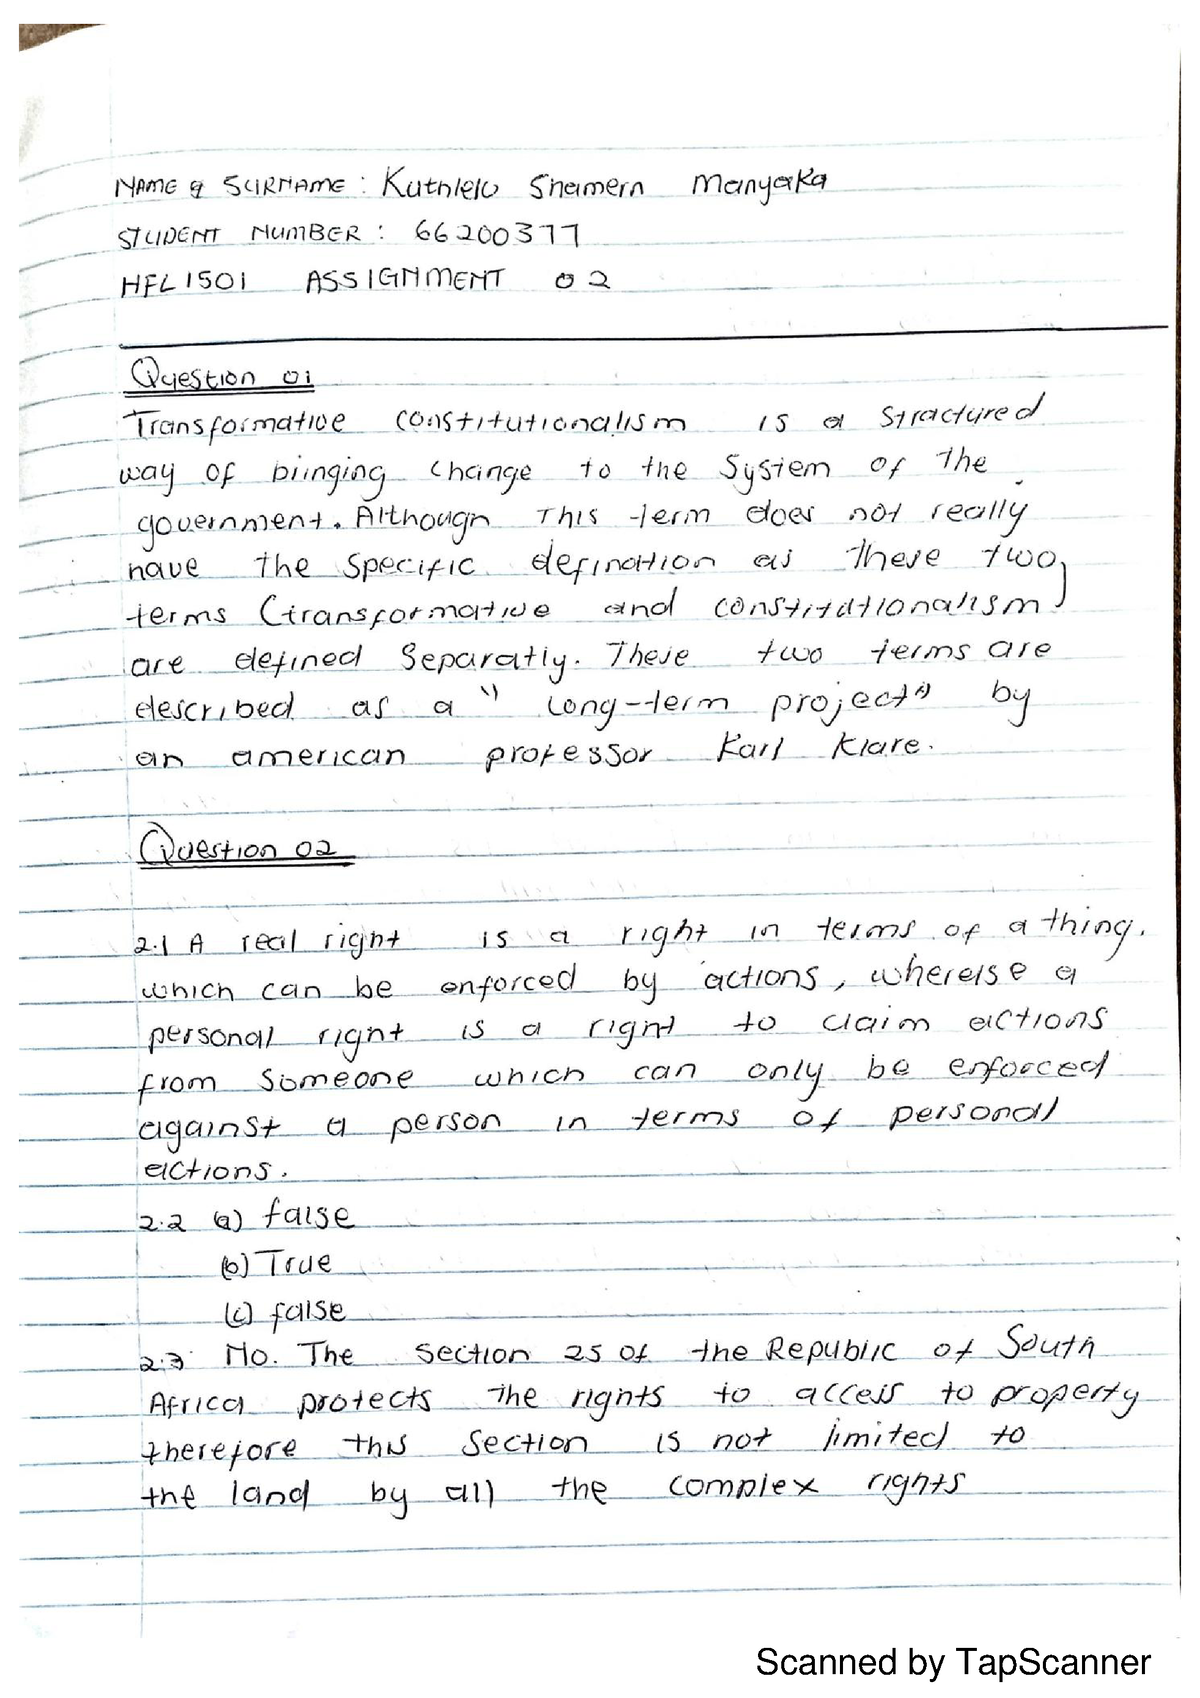 NAME & SURNAME : Kuthlelo Shamern Manyaka
STUDENT NUMBER : 66200377
HFL1501 ASSIGNMENT 02
Question 01
Transformative constitutionalism is a stractured
way of bringing change to the system of the
government. Although this term does not really
have the specific defination as these two
terms (transformative and constitutionalism)
are defined separatly. These two terms are
described as a "long-term project" by
an american professor Karl Klare.
Question 02
2.1 A real right is a right in terms of a thing.
which can be enforced by actions, wherelse a
personal right is a right to claim actions
from someone which can only be enforced
against a person in terms of personal
actions.
2.2 (a) false
(b) True
(c) false
2.3 No. The section 25 of the Republic of South
Africa protects the rights to access to property
therefore this section is not limited to
the land by all the complex rights
Scanned by TapScanner